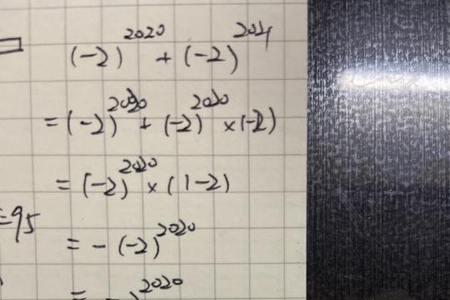 (-2)^2020 + (-2)^2021
= (-2)^2020 + (-2)^2020 × (-2)
= (-2)^2020 × (1-2)
=95
= - (-2)^2020